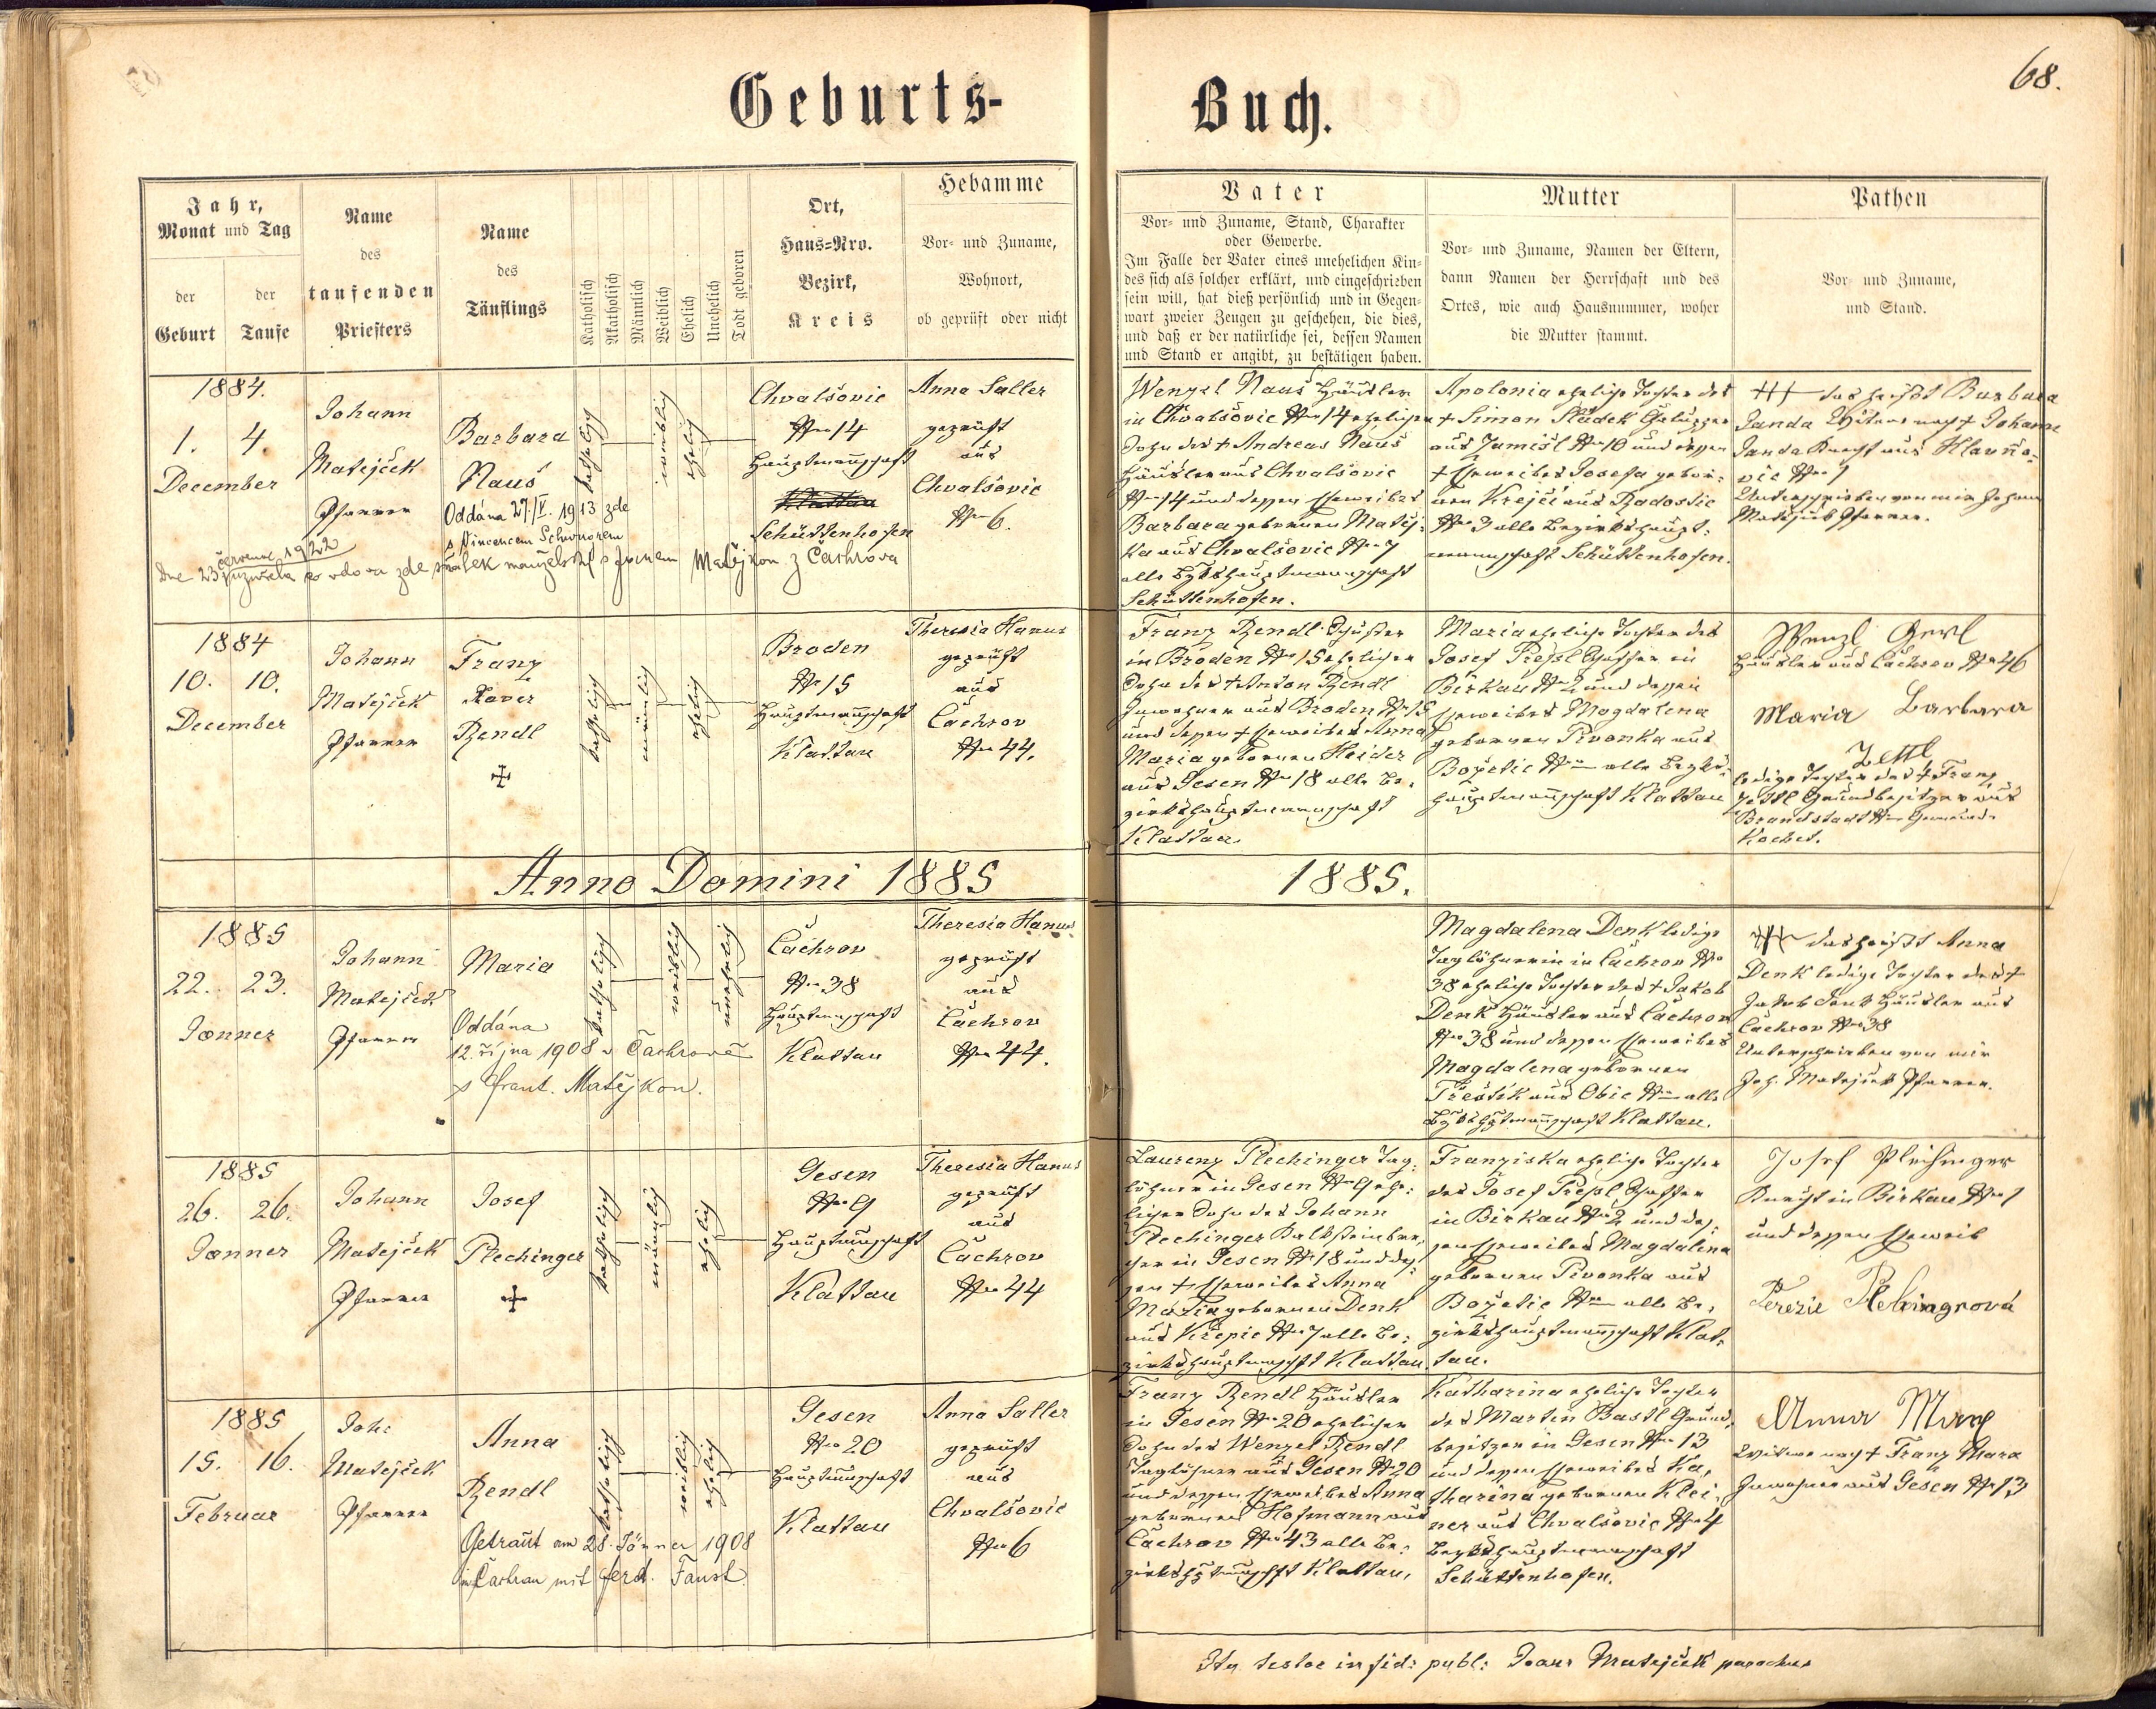 Geburts-
Buch.
68.
Jahr,
Monat und Tag
der
Geburt
der
Taufe
Name
des
taufenden
Priesters
Name
des
Täuflings
Katholisch
Akatholisch
Männlich
Weiblich
Ehelich
Unehelich
Todt geboren
Ort,
Haus=Nro.
Bezirk,
Kreis
Hebamme
Vor- und Zuname,
Wohnort,
ob geprüft oder nicht
Vater
Vor- und Zuname, Stand, Charakter
oder Gewerbe.
Im Falle der Vater eines unehelichen Kin-
des sich als solcher erklärt, und eingeschrieben
sein will, hat dieß persönlich und in Gegen-
wart zweier Zeugen zu geschehen, die dies,
und daß er der natürliche sei, dessen Namen
und Stand er angibt, zu bestätigen haben.
Mutter
Vor- und Zuname, Namen der Eltern,
dann Namen der Herrschaft und des
Ortes, wie auch Hausnummer, woher
die Mutter stammt.
Pathen
Vor- und Zuname,
und Stand.
1884.
1. 4.
December
Johann
Matejček
Pfarrer
Barbara
Naus
Oddána 27./V. 1913 zde
s Vincencem
katholisch
weiblich
ehelich
Chvalšovic
Nro 14
Hauptmannschaft
Klattau
Schüttenhofen
Anna Saller
geprüft
aus
Chvalšovic
Nro 6.
července 1922
Dne 23 uzavřela co vdova zde sňatek manželský s Matějkou z Čachrova
Wenzel Naus Häusler
in Chvalšovic Nro 14 ehelicher
Sohn des † Andreas Naus
Häusler aus Chvalšovic
Nro 14 und dessen Eheweibes
Barbara geborenen Matěj-
ka aus Chvalšovic Nro 7
alle Bzkshauptmannschaft
Schüttenhofen.
Apolonia eheliche Tochter des
† Simon Sládek
aus Jamišl Nro 10 und dessen
† Eheweibes Josefa gebor-
nen Krejčí aus Radostic
Nro 3 alle Bezirkshaupt-
mannschaft Schüttenhofen.
††† das heißt Barbara
Janda Witwe nach † Johann
Janda Knecht aus Hlavňo-
vic Nro 1
Unterschrieben von mir Johann
Matejček Pfarrer.
1884
10. 10.
December
Johann
Matejček
Pfarrer
Franz
Xaver
Rendl
katholisch
männlich
ehelich
Broden
Nr 15
Hauptmannschaft
Klattau
Theresia Hanus
geprüft
aus
Čachrov
Nro 44.
Franz Rendl Schuster
in Broden Nro 15 ehelicher
Sohn des † Anton Rendl
Inwohner aus Broden Nro 15
und dessen † Eheweibes Anna
Maria geborenen Haider
aus Gesen Nro 18 alle Be-
zirkshauptmannschaft
Klattau.
Maria eheliche Tochter des
Josef Preßl Schaffer in
Birkau Nro 2 und dessen
Eheweibes Magdalena
gebornen Pivonka aus
Božetic Nro — alle Bezks-
hauptmannschaft Klattau
Wenzl Gerl
Häusler aus Čachrov Nro 46
Maria Barbara
Zettl
ledige Tochter des † Franz
Zettl Grundbesitzer aus
Brandstadt Nro — Gemeinde
Kochet.
Anno Domini 1885
1885.
1885
22. 23.
Jänner
Johann
Matejček
Pfarrer
Maria
Oddána
12. října 1908 v Čachrově
s Frant. Matějkou.
katholisch
weiblich
unehelich
Čachrov
Nro 38
Hauptmannschaft
Klattau
Theresia Hanus
geprüft
aus
Čachrov
Nro 44.
Magdalena Denk ledige
Taglöhnerin in Čachrov Nro
38 eheliche Tochter des † Jakob
Denk Häusler aus Čachrov
Nro 38 und dessen Eheweibes
Magdalena gebornen
Treštik aus Obic Nro — alle
Bzkshptmannschaft Klattau.
††† das heißt Anna
Denk ledige Tochter des †
Jakob Denk Häusler aus
Čachrov Nro 38
Unterschrieben von mir
Joh. Matejček Pfarrer.
1885
26. 26.
Jänner
Johann
Matejček
Pfarrer
Josef
Plechinger
katholisch
männlich
ehelich
Gesen
Nro 9
Hauptmannschaft
Klattau
Theresia Hanus
geprüft
aus
Čachrov
Nro 44
Laurenz Plechinger Tag-
löhner in Gesen Nro 9 ehe-
licher Sohn des Johann
Plechinger Kalksteinbre-
cher in Gesen Nr 18 und des-
sen † Eheweibes Anna
Maria gebornen Denk
aus Křepic Nro 7 alle Be-
zirkshauptmannschft Klattau.
Franziska eheliche Tochter
des Josef Preßl Schaffer
in Birkau Nro 2 und des-
sen Eheweibes Magdalena
gebornen Pivonka aus
Božetic Nro — alle Be-
zirkshauptmannschaft Klat-
tau.
Josef Plechinger
Knecht in Birkau Nro 1
und dessen Eheweib
Terezie Plehingrová
1885
15. 16.
Februar
Joh:
Matejček
Pfarrer
Anna
Rendl
Getraut am 28. Jänner 1908
in Čachrau mit Ferd. Faust
katholisch
weiblich
ehelich
Gesen
Nro 20
Hauptmannschaft
Klattau
Anna Saller
geprüft
aus
Chvalšovic
Nro 6
Franz Rendl Häusler
in Gesen Nro 20 ehelicher
Sohn des Wenzel Rendl
Taglöhner aus Gesen Nr 20
und dessen Eheweibes Anna
gebornen Hofmann aus
Čachrov Nro 43 alle Be-
zirkshptmannschft Klattau.
Katharina eheliche Tochter
des Martin Bastl Grund-
besitzer in Gesen Nro 13
und dessen Eheweibes Ka-
tharina gebornen Klei-
ner aus Chvalšovic Nro 4
Bezkshauptmannschaft
Schüttenhofen.
Anna Marx
Witwe nach † Franz Marx
Inwohner aus Gesen Nro 13
Ita testor in fid: publ: Joann Matejček parochus